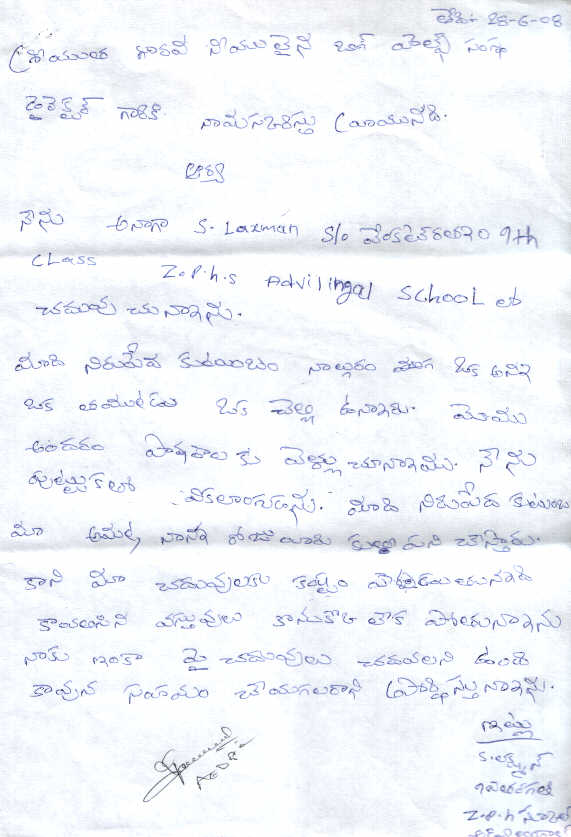 తేది:- 28-6-08
శ్రీయుత గౌరవ నీయులైన బాగ్ హెల్ప్ సంస్థ
డైరెక్టర్ గారికి. నామసకరిస్తు వ్రాయునది.
అర్జి
నేను అనగా S. Laxman S/o వెంకటేశం 9th
CLass Z.P.h.s Advilingal SCHOOL లో
చదువు చున్నాను.
మాది నిరుపేద కుటుంబం నాల్గురం మాగ ఒక అన్న
ఒక తమ్ముడు ఒక చెల్లి ఉన్నారు. మేము
అందరం పాఠశాల కు వెళ్లు చూన్నాము. నేను
పుట్టుకలో వికలాంగుడను. మాది నిరుపేద కుటుంబ
మా అమ్మ, నాన్న రోజు వారు కూలి పని చేస్తారు.
కాని మా చదువులకు కష్టం
కావలసిన వస్తువులు కొనుకొ లేక పోతున్నాను
నాకు ఇంకా పై చదువులు చదవలని ఉంది
కావున సహయం చేయగలరాని ప్రార్థిస్తు నాను.
ఇట్లు
S. లక్ష్మన్
9వ తరగతి
Z.P.h స్కూల్
AEDRI